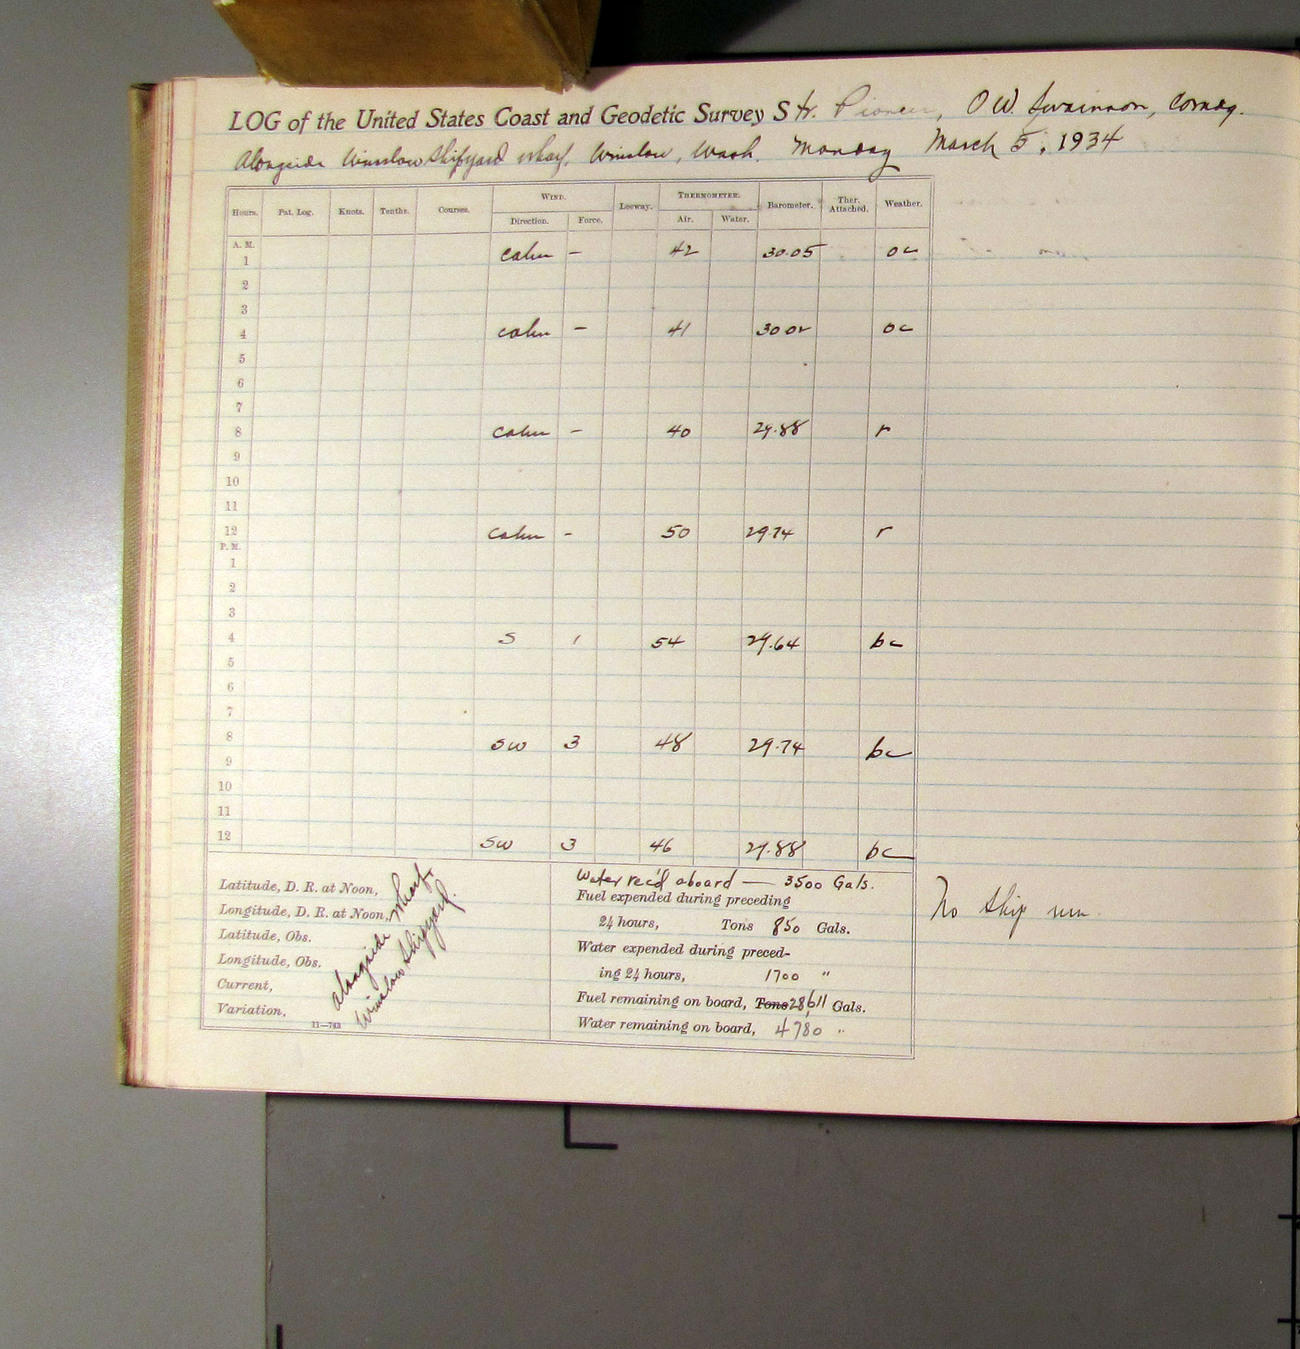 LOG of the United States Coast and Geodetic Survey Str. Pioneer, O.W. Swainson, Comdg.
Alongside Winslow Shipyard wharf, Winslow, Wash. Monday March 5, 1934
Hours. Pat. Log. Knots. Tenths. Courses. WIND. Leeway. THERMOMETER. Barometer. Ther. Attached. Weather.
Direction. Force. Air. Water.
A. M.
1 calm – 42 30.05 oc
2
3
4 calm – 41 30.02 oc
5
6
7
8 calm – 40 29.88 r
9
10
11
12 calm – 50 29.74 r
P. M.
1
2
3
4 S 1 54 29.64 bc
5
6
7
8 SW 3 48 29.74 bc
9
10
11
12 SW 3 46 29.88 bc
Latitude, D. R. at Noon,
Longitude, D. R. at Noon,
Latitude, Obs.
Longitude, Obs.
Current,
Variation,
11—763
alongside wharf,
Winslow Shipyard.
Water rec'd aboard — 3500 Gals.
Fuel expended during preceding
24 hours, Tons 850 Gals.
Water expended during preced-
ing 24 hours, 1700 "
Fuel remaining on board, Tons 28,611 Gals.
Water remaining on board, 4780 "
No ship run